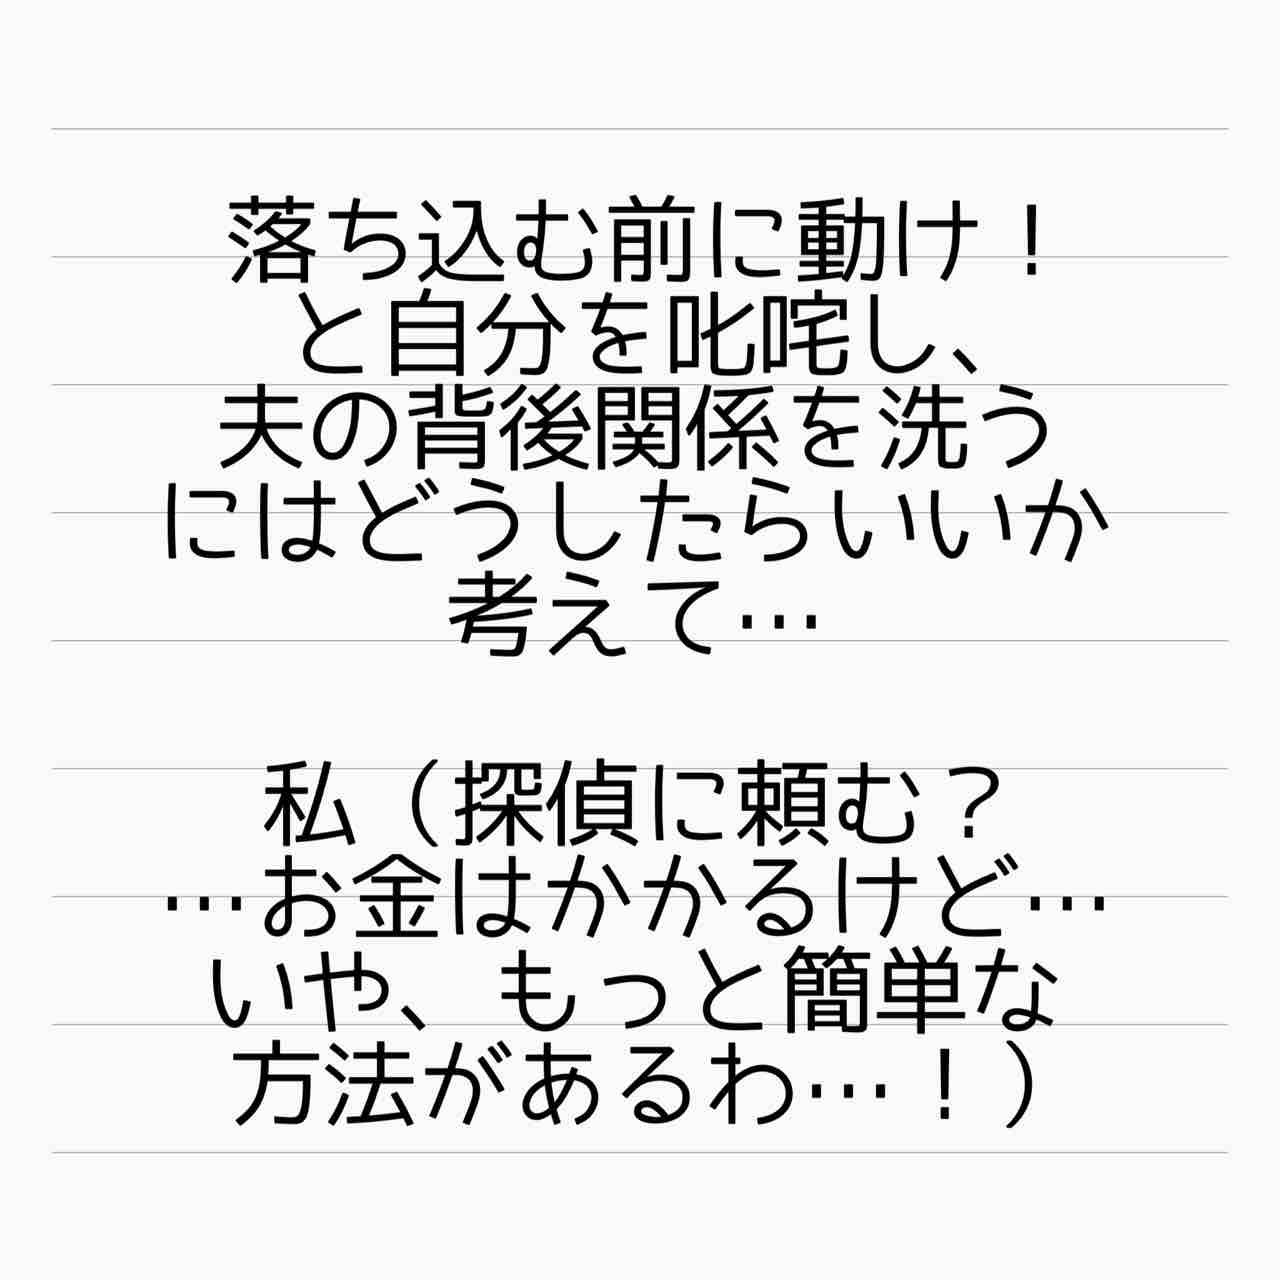 落ち込む前に動け！
と自分を叱咤し、
夫の背後関係を洗う
にはどうしたらいいか
考えて…
私（探偵に頼む？
…お金はかかるけど…
いや、もっと簡単な
方法があるわ…！）